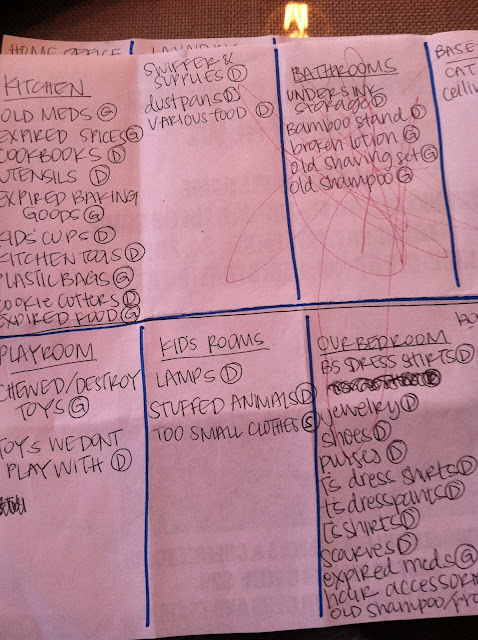 HOME OFFICE
KITCHEN
OLD MEDS G
EXPIRED SPICES G
COOKBOOKS D
UTENSILS D
EXPIRED BAKING
GOODS G
KIDS' CUPS D
KITCHEN TOOLS D
PLASTIC BAGS G
COOKIE CUTTERS D
EXPIRED FOOD G
SWIFFER &
SUPPLIES D
dustpans D
VARIOUS FOOD D
BATHROOMS
UNDERSINK
STORAGE D
Bamboo stand D
broken lotion G
old shaving set G
old shampoo G
BASE
CAT
ceilin
PLAYROOM
CHEWED/DESTROY
TOYS G
TOYS WE DONT
PLAY WITH D
KIDS ROOMS
LAMPS D
STUFFED ANIMALS D
TOO SMALL CLOTHES
OUR BEDROOM
B'S DRESS SHIRTS D
jewelry D
shoes D
purses D
T's dress shirts D
t's dresspants D
T's shirts D
scarves D
expired meds G
hair accessori
OLD shampoo/